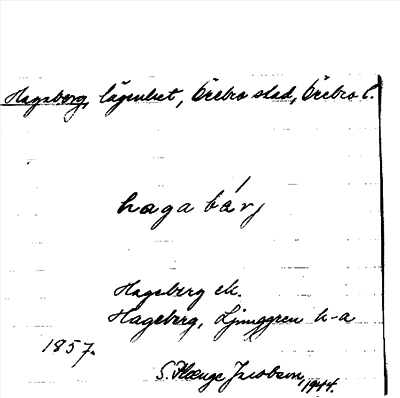 Hagaberg, lägenhet, Örebro stad, Örebro l.
haga bárj
Hagaberg ek.
Hageberg, Ljunggren h-a
1857.
S. Hænge Jacobson, 1944.